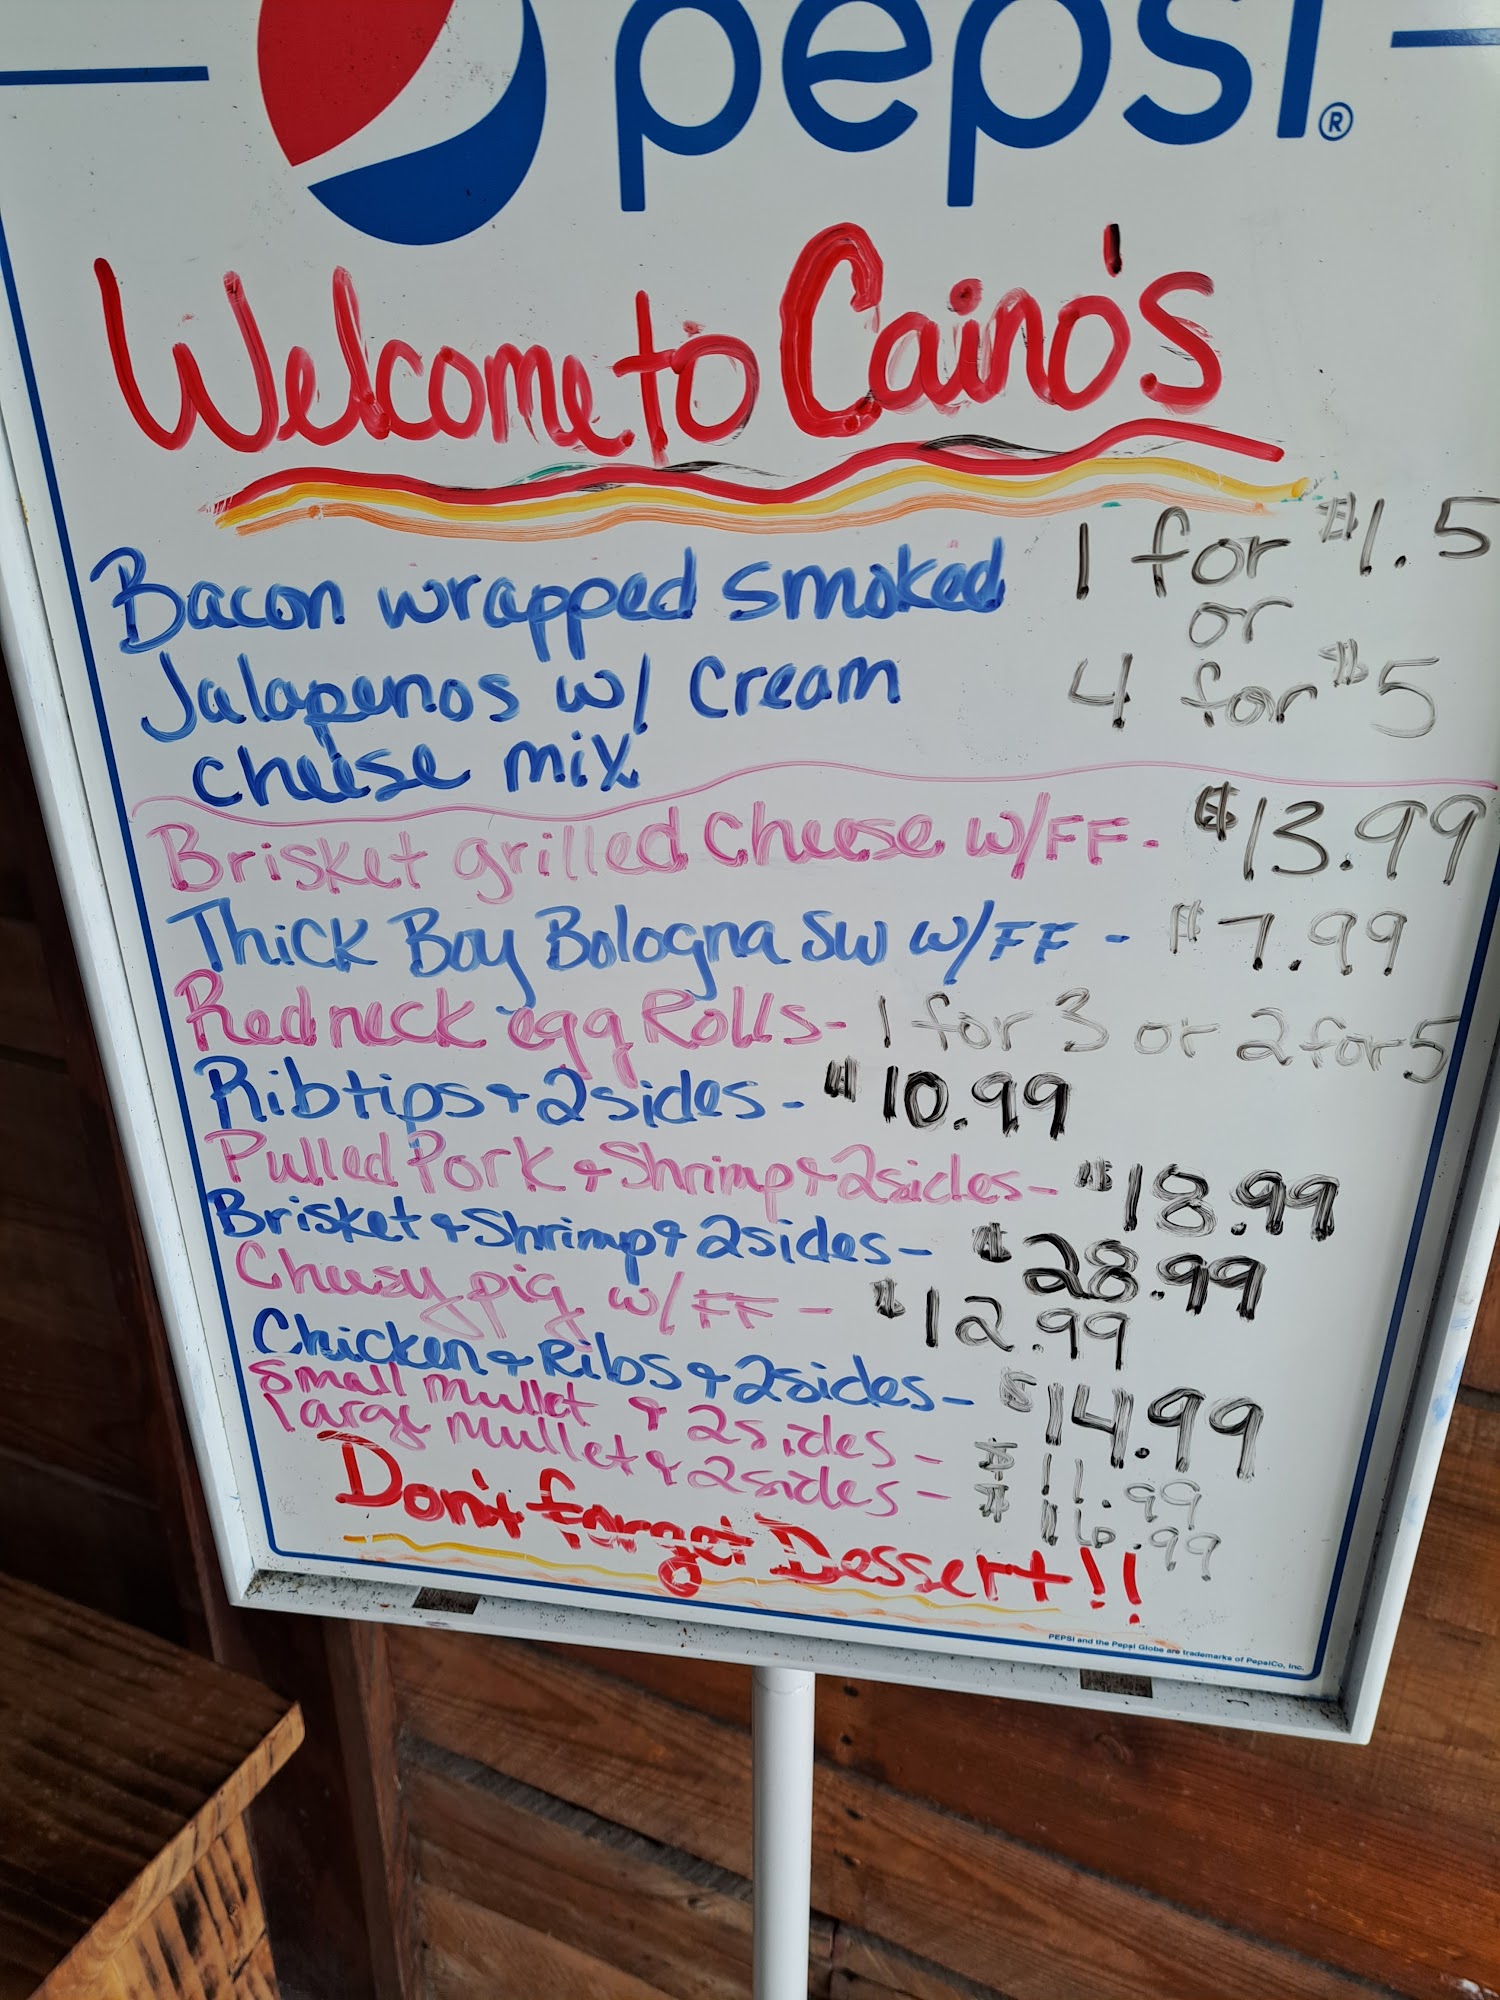 pepsi®
Welcome to Caino's
Bacon wrapped smoked 1 for $1.5
or
Jalapenos w/ cream 4 for $5
cheese mix
Brisket grilled cheese w/FF - $13.99
Thick Boy Bologna SW w/FF - $7.99
Redneck egg Rolls - 1 for 3 or 2 for 5
Rib tips + 2 sides - $10.99
Pulled Pork + Shrimp + 2 sides - $18.99
Brisket + Shrimp + 2 sides - $28.99
Cheesy pig w/FF - $12.99
Chicken + Ribs + 2 sides - $14.99
Small mullet + 2 sides - $11.99
Large mullet + 2 sides - $16.99
Don't forget Dessert!!
PEPSI and the Pepsi Globe are trademarks of PepsiCo, Inc.